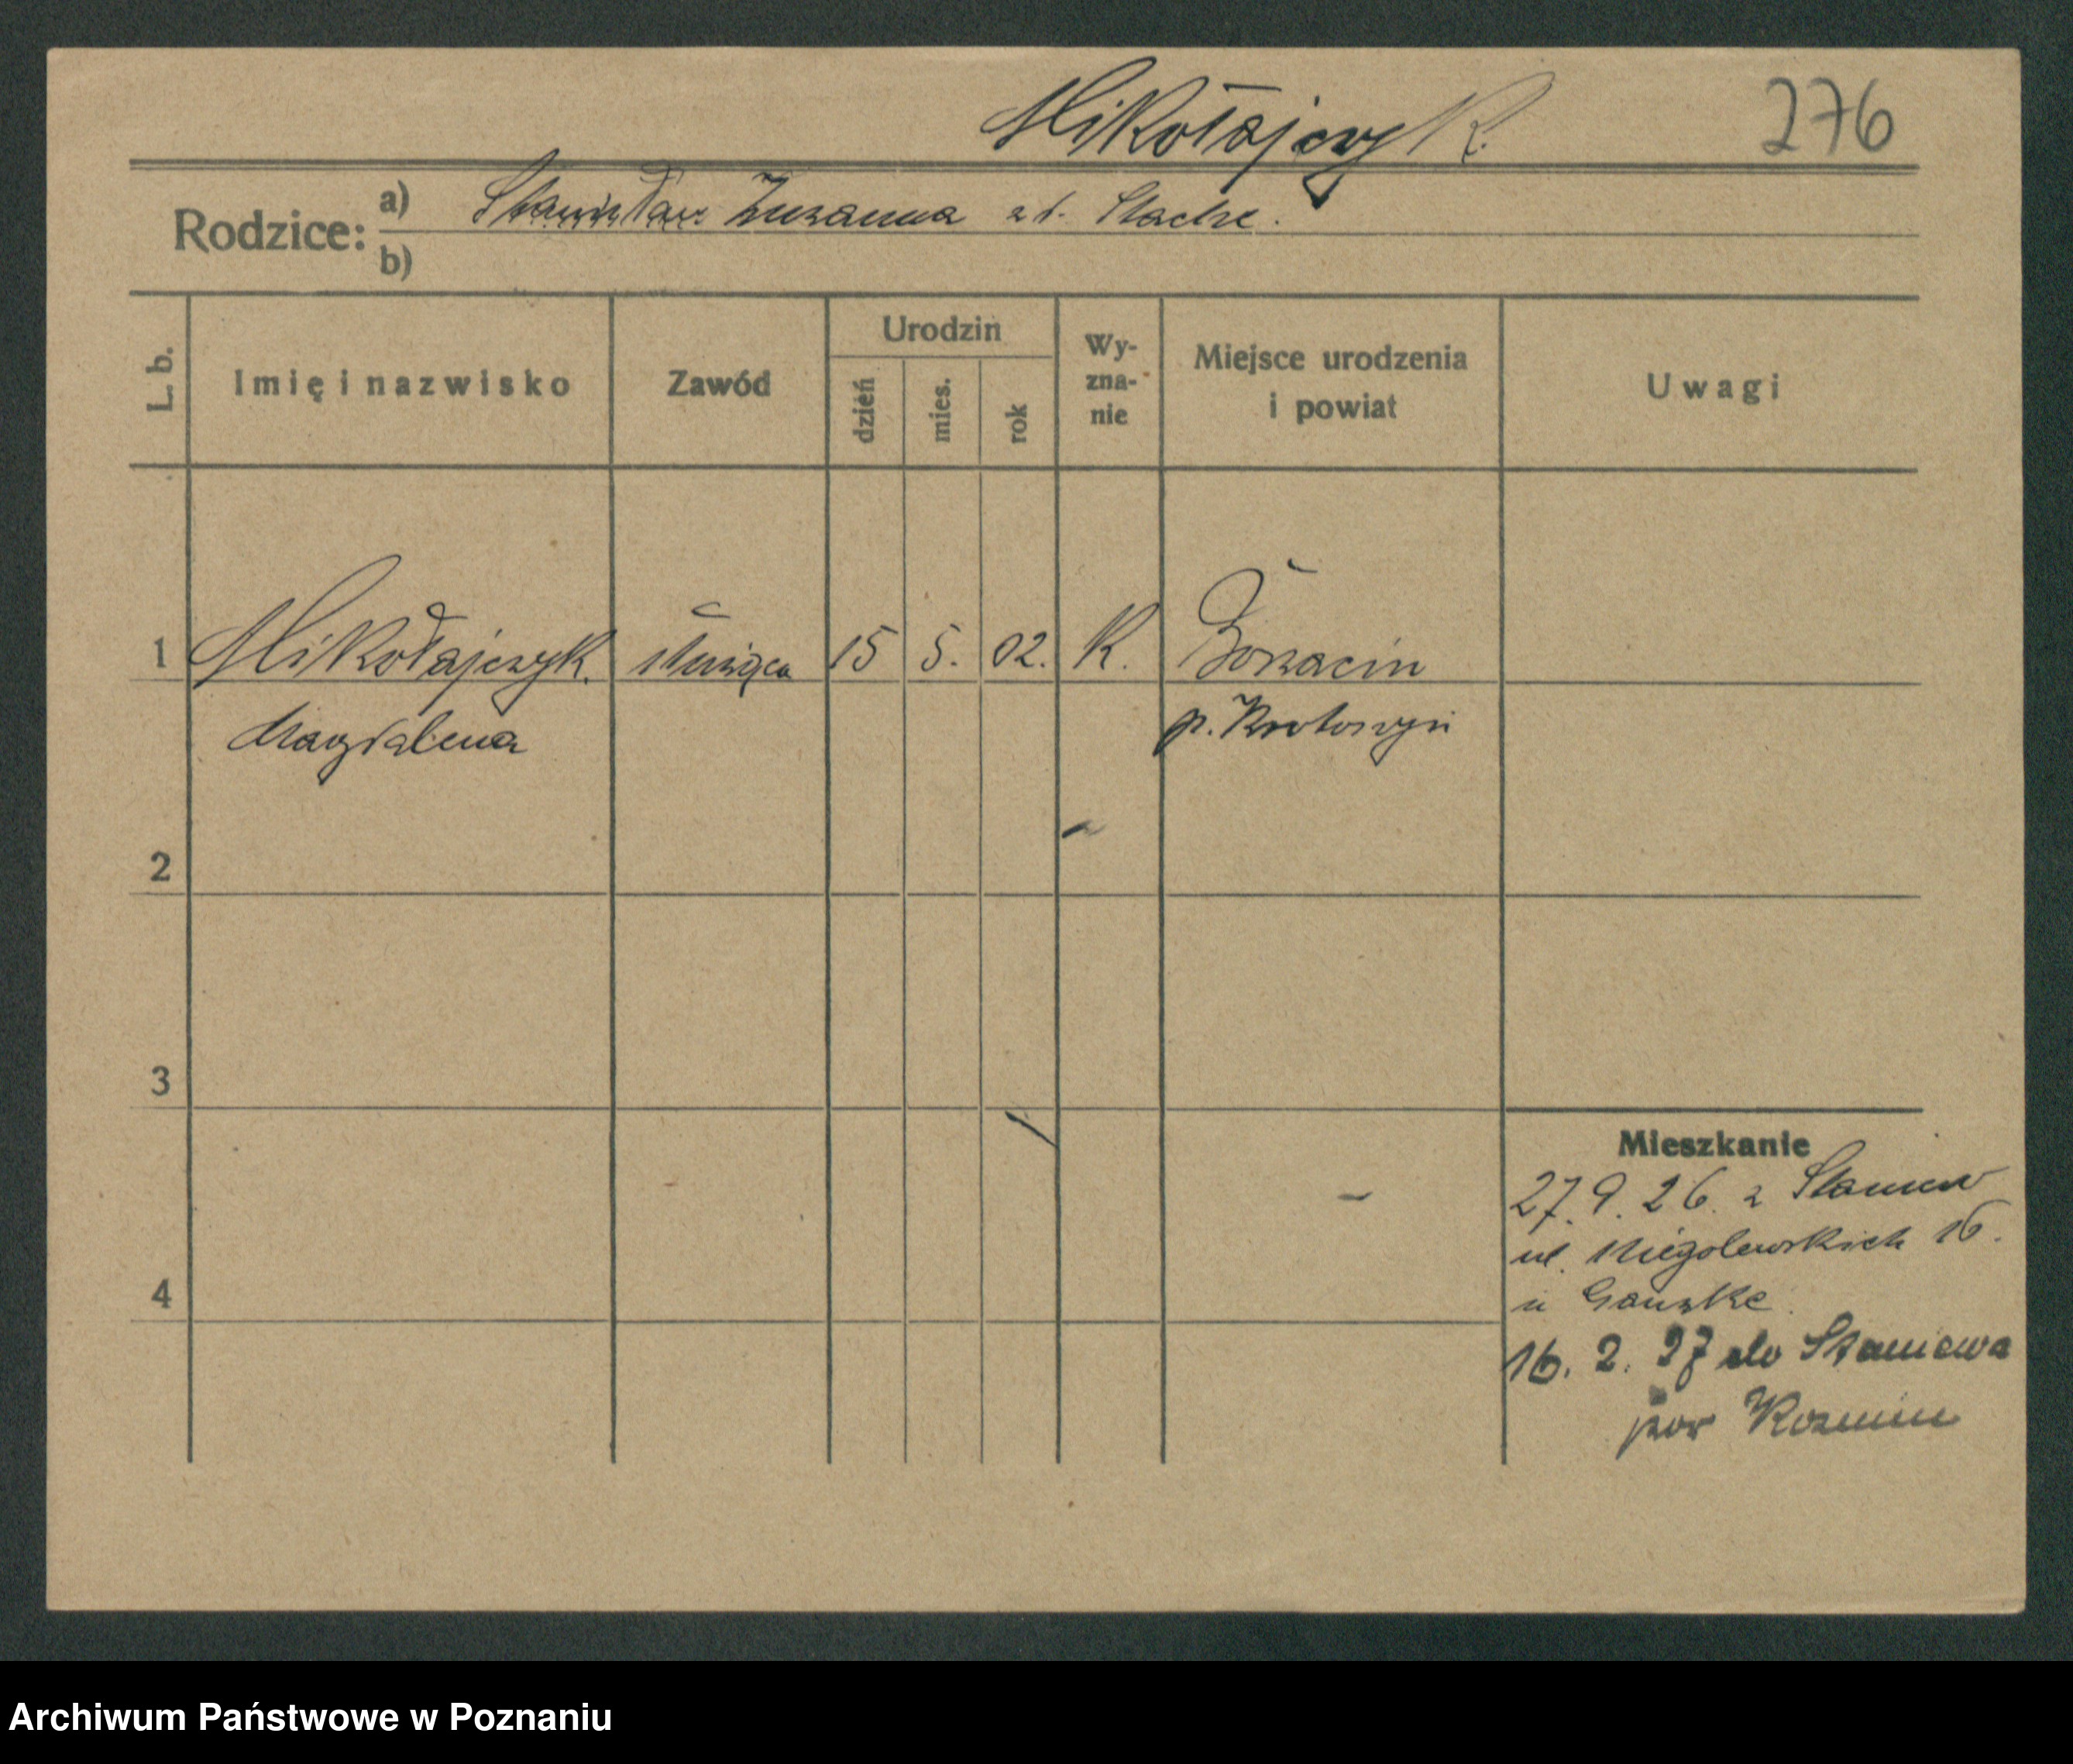 Mikołajczyk.
276
Rodzice:
a) Stanisław Zuzanna z d. Stache.
b)
L. b.
Imię i nazwisko
Zawód
Urodzin
dzień
mies.
rok
Wy-
zna-
nie
Miejsce urodzenia
i powiat
Uwagi
1 Mikołajczyk. służąca 15 5. 02. K. Borzacin
Magdalena p. Krotoszyn
2
3
4
Mieszkanie
27.9.26. z Staniew
ul. Niegolewskich 16.
u
16. 2. 27 do Staniewa
pow Kozmin
Archiwum Państwowe w Poznaniu